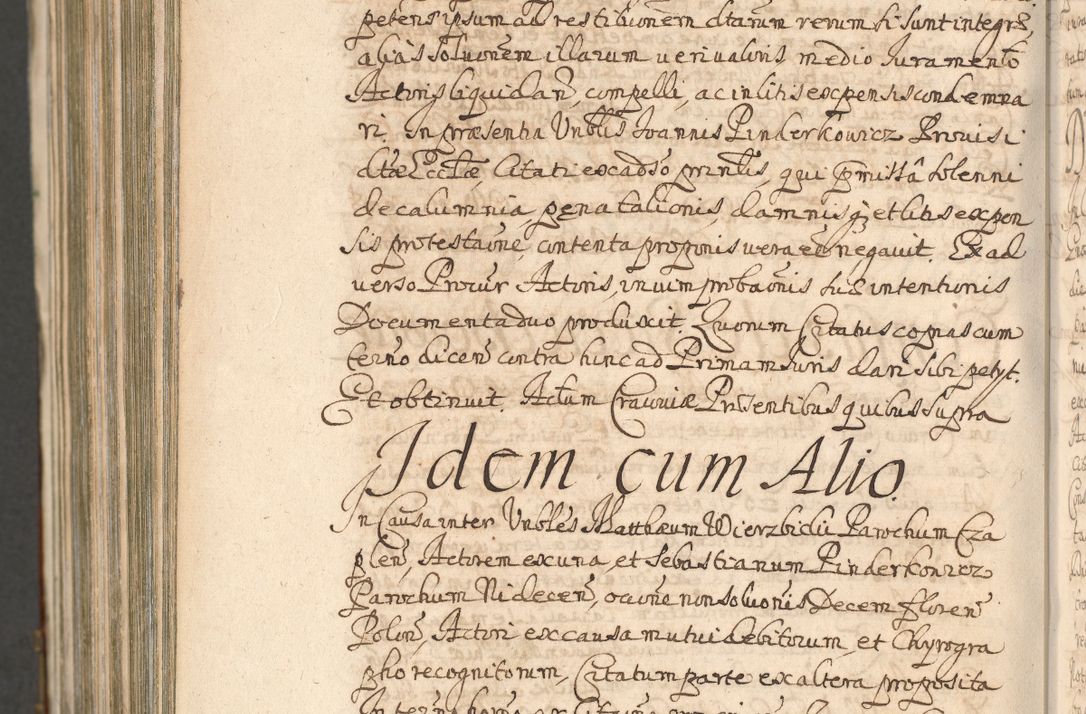 petens ipsum ad restitūonem dtarum rerum si sunt integræ,
alias solūonem illarum veri valoris medio Iuramento
Actoris liquidan̄, compelli, ac in litis expensis condemna
ri. In præsentia Vnblis Ioannis Pinderkowicz Provisi
dtæ Eccłæ, Citati ex adso prinlis, qui præmissâ solenni
de calumnia, pena talionis, damnisq; et litis expen
sis protestaōne, contenta proponis vera eē negavit. Ex ad
verso Procūr Actoris, in vim probaōnis suæ intentionis
Documenta duo produxit. Quorum Citatus copias cum
termo dicen̄ contra hinc ad Primam Iuris dari sibi petyt.
Et obtinuit. Actum Cracoviæ Præsentibus quibus supra
Idem cum Alio.
In Causa inter Vnbles Matthæum Wierzbicki Parochum Cza
plen̄, Actorem ex una, et Sebastianum Pinderkowicz
Parochum Nidecen̄, oc̄ione non soluōnis Decem floren̄
Polon̄ Actori ex causa mutui debitorum, et Chyrogra
pho recognitorum, Citatum parte ex altera proposita